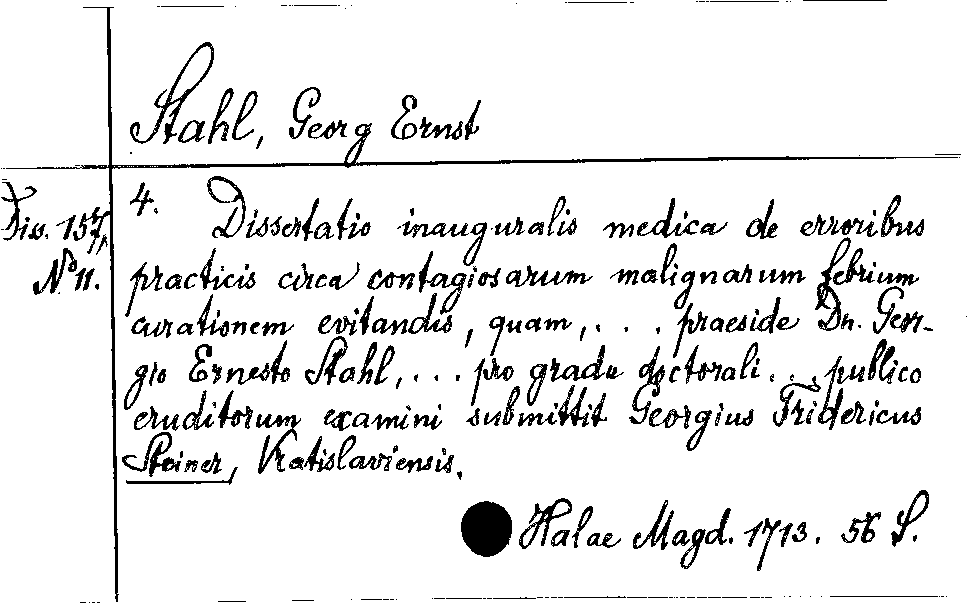 Stahl, Georg Ernst
Diss.
No 11.
4. Dissertatio inauguralis medica de erroribus
practicis circa contagiosarum malignarum febrium
curationem evitandis, quam, . . . praeside Dn. Geor-
gio Ernesto Stahl, . . . pro gradu doctorali . . . publico
eruditorum examini submittit Georgius Fridericus
Steiner, Vratislaviensis.
Halae Magd. 1713. 56 S.